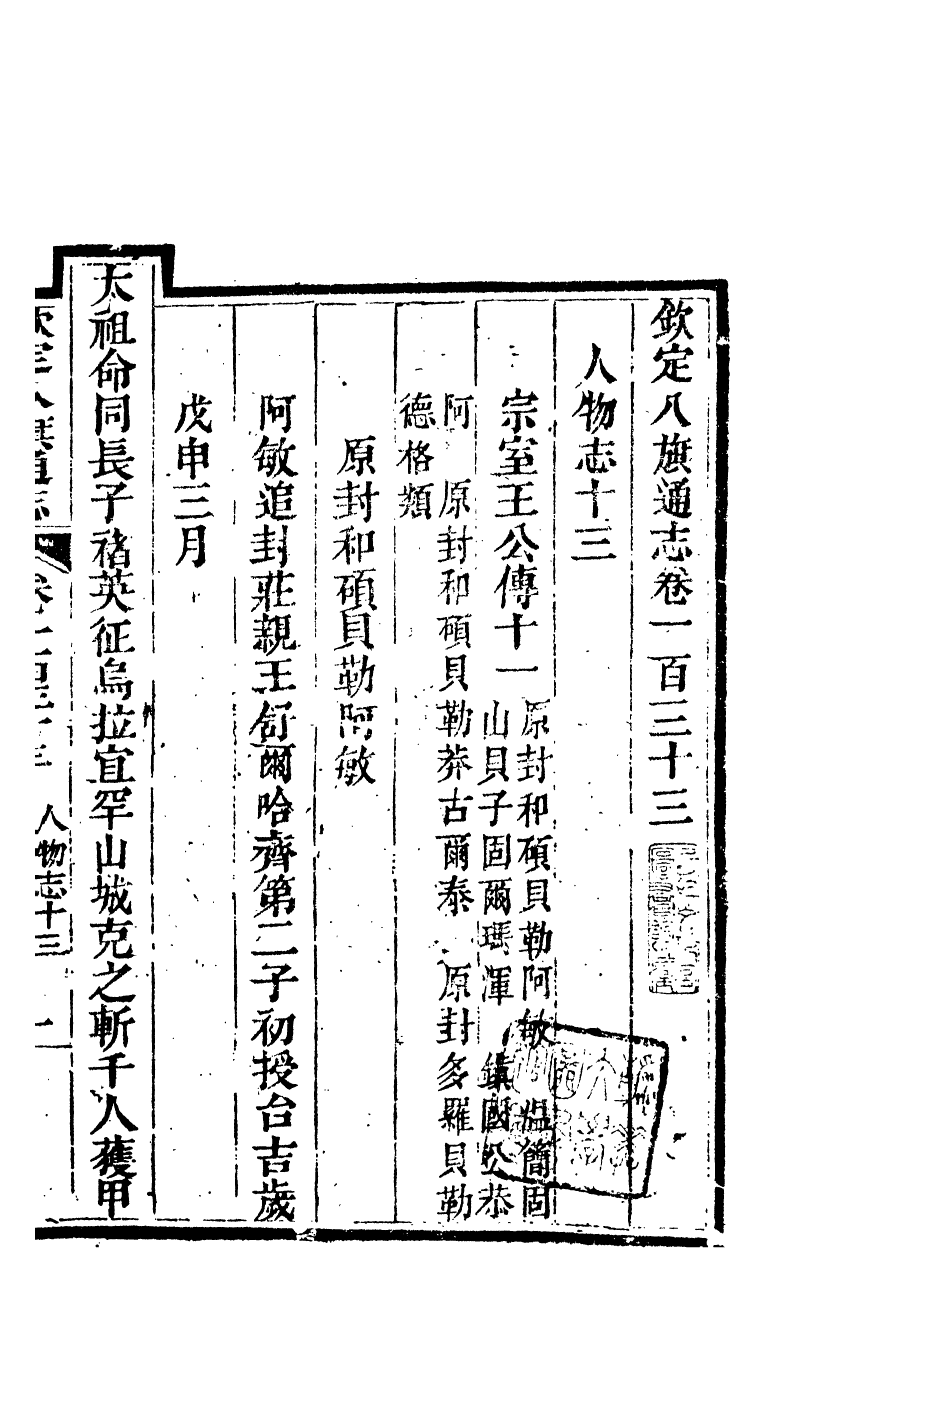 欽定八旗通志卷一百三十三
人物志十三
宗室王公傳十一
原封和碩貝勒阿敏 温簡固
山貝子固爾瑪渾 鎮國公恭
阿 原封和碩貝勒莽古爾泰 原封多羅貝勒
德格類
原封和碩貝勒阿敏
阿敏追封莊親王舒爾哈齊第二子初授台吉歲
戊申三月
太祖命同長子褚英征烏拉宜罕山城克之斬千人獲甲
人物志十三
一